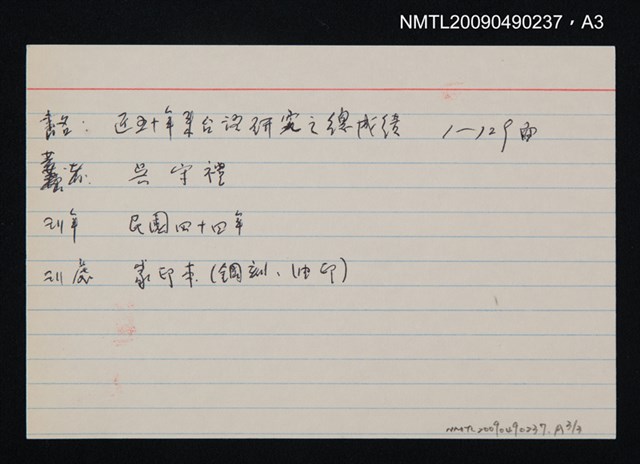 NMTL20090490237，A3
書名： 近五十年来台語研究之總成績 1—129面
著者. 吳守禮
刊年 民國四十四年
刊處 家印本（鋼刻、油印）
NMTL20090490237. A3/3